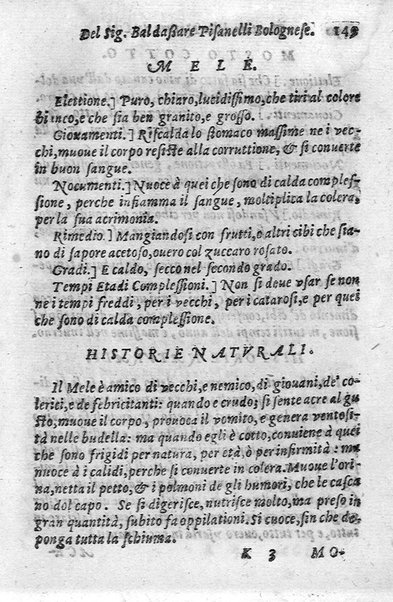 Del Sig. Baldaſſare Piſanelli Bologneſe. 149
MELE.
Elettione.] Puro, chiaro, lucidiſſimo, che tiri al colore
biāco, e che ſia ben granito, e groſſo.
Giouamenti.] Riſcalda lo ſtomaco maſſime ne i vec-
chi, muoue il corpo reſiſte alla corruttione, & ſi conuerte
in buon ſangue.
Nocumenti.] Nuoce à quei che ſono di calda compleſ-
ſione, perche infiamma il ſangue, moltiplica la colera,
per la ſua acrimonia.
Rimedio.] Mangiandoſi con frutti, e altri cibi che ſia-
no di ſapore acetoſo, ouero col zuccaro roſato.
Gradi.] E caldo, ſecco nel ſecondo grado.
Tempi Etadi Compleſſioni.] Non ſi deue vſar ſe non
ne i tempi freddi, per i vecchi, per i cataroſi, e per quei
che ſono di calda compleſſione.
HISTORIE NATVRALI.
Il Mele è amico di vecchi, e nemico, di giouani, de' co-
lerici, e de febricitanti: quando e crudo; ſi ſente acre al gu-
ſto, muoue il corpo, prouoca il vomito, e genera ventoſi-
tà nelle budella: ma quando egli è cotto, conuiene à quei
che ſono frigidi per natura, per età, ò per infirmità: ma
nuoce à i calidi, perche ſi conuerte in colera. Muoue l'ori-
na, netta il petto, & i polmoni de gli humori, che le caſca
no dal capo. Se ſi digeriſce, nutriſce molto, ma preſo in
gran quantità, ſubito fa oppilationi. Si cuoce, ſin che de-
ponga tutta la ſchiuma.
K 3 MO-